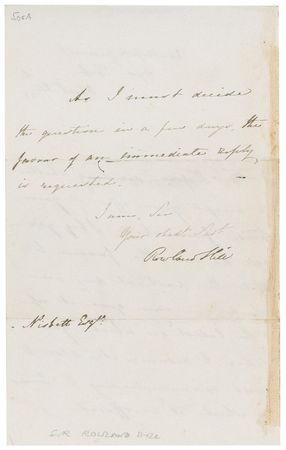 As I must decide
the question in a few days, the
favour of an immediate reply
is requested.
I am, Sir
Your obedt. Servt
Rowland Hill
- Nisbett Esqr.
SIR ROWLAND HILL